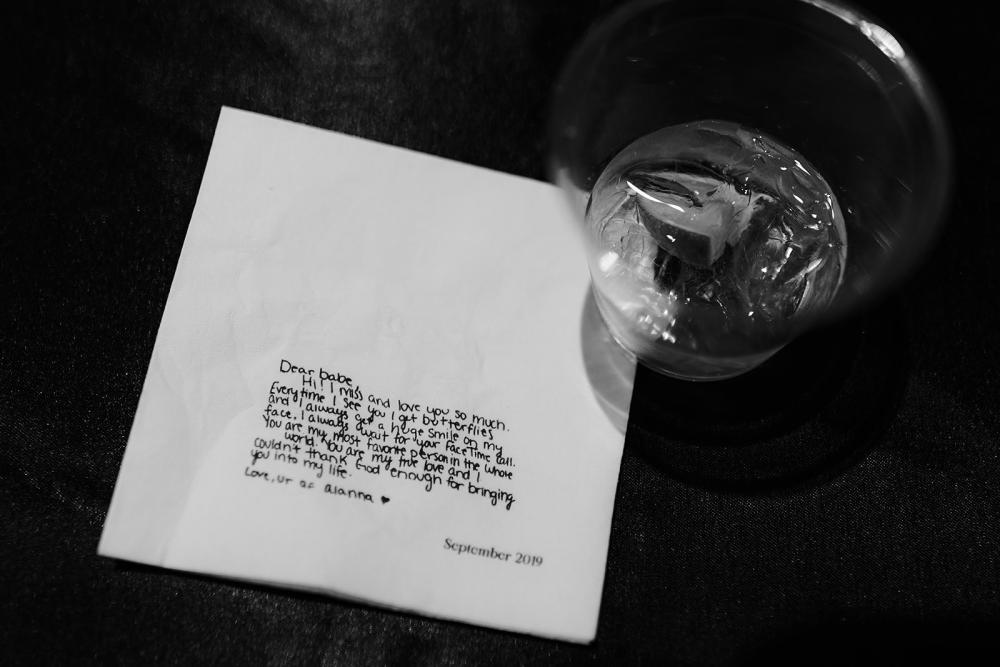 Dear babe,
Hi! I miss and love you so much.
Everytime I see you I get butterflies
and I always get a huge smile on my
face. I always await for your FaceTime call.
You are my most favorite person in the whole
world. You are my true love and I
couldn't thank God enough for bringing
you into my life.
Love, ur gf alanna ♥
September 2019